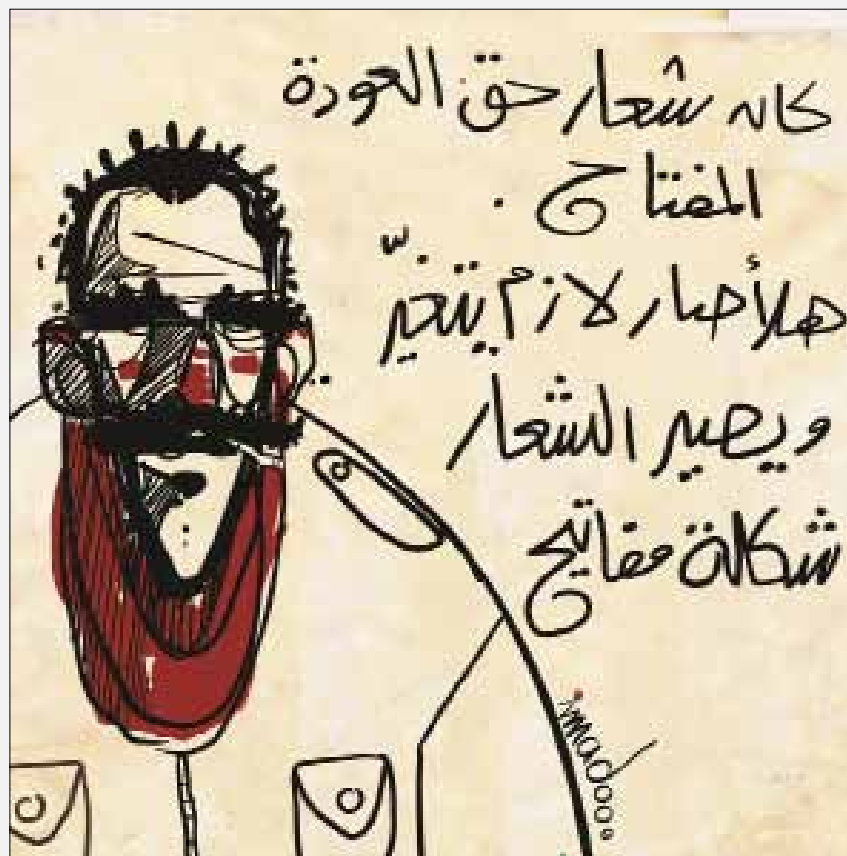 كان شعار حق العودة
المفتاح .
هلأ صار لازم يتغيّر
ويصير الشعار
شكالة مفاتيح
imadooo